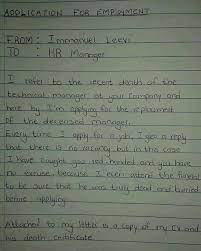 APPLICATION FOR EMPLOYMENT
FROM: Immanuel Leevi
TO : HR Manager
I refer to the recent death of the
technical manager at your company and
here by I'm applying for the replacement
of the deceased manager.
Every time I apply for a job, I get a reply
that there is no vacancy but in this case
I have caught you red handed and you have
no excuse because I even attend the funeral
to be sure that he was truly dead and buried
before applying.
Attached to my letter is a copy of my CV and
his death certificate.